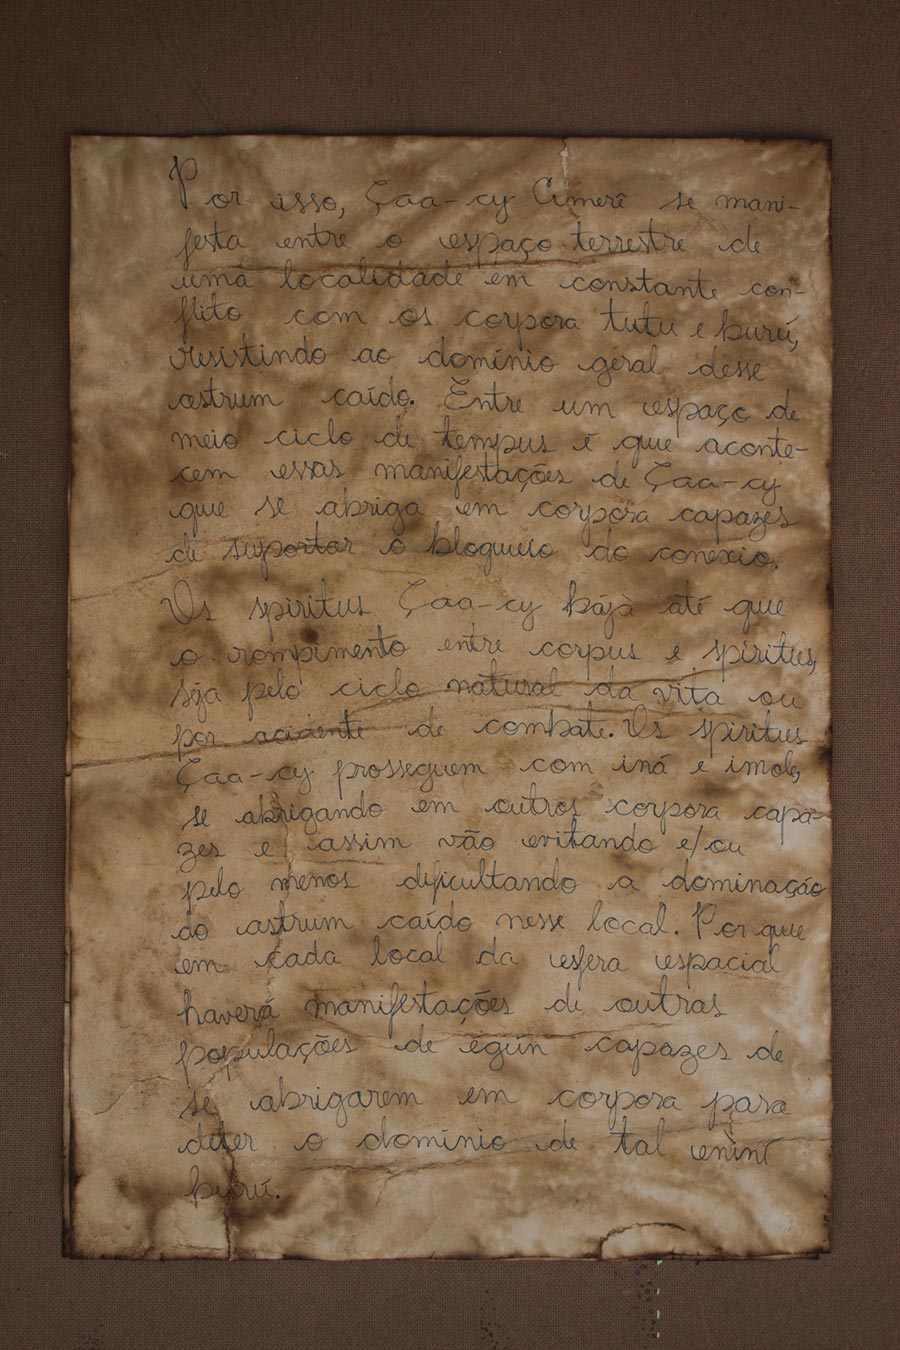 Por isso, Çaa-cy Cimerê se mani-
festa entre o espaço terrestre de
uma localidade em constante con-
flito com os corpora tutu e burú,
resistindo ao domínio geral desse
astrum caído. Entre um espaço de
meio ciclo de tempus é que aconte-
cem essas manifestações de Çaa-cy
que se abriga em corpora capazes
de suportar o bloqueio do conexio.
Os spiritus Çaa-cy bájà até que
o rompimento entre corpus e spiritus,
seja pelo ciclo natural da vita ou
por acidente de combate. Os spiritus
Çaa-cy prosseguem com iná e imolẹ,
se abrigando em outros corpora capa-
zes e assim vão evitando e/ou
pelo menos dificultando a dominação
do astrum caído nesse local. Por que
em cada local da esfera espacial
haverá manifestações de outras
populações de égún capazes de
se abrigarem em corpora para
deter o domínio de tal ẹni
burú.